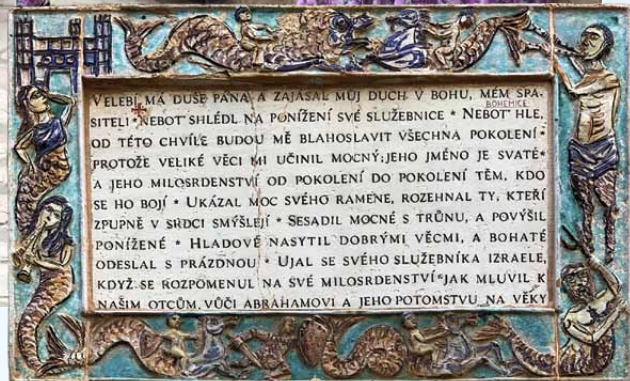 VELEBÍ MÁ DUŠE PÁNA A ZAJÁSAL MŮJ DUCH V BOHU, MÉM SPA-
BOHEMICE:
SITELI * NEBOŤ SHLÉDL NA PONÍŽENÍ SVÉ SLUŽEBNICE * NEBOŤ HLE,
OD TÉTO CHVÍLE BUDOU MĚ BLAHOSLAVIT VŠECHNA POKOLENÍ *
PROTOŽE VELIKÉ VĚCI MI UČINIL MOCNÝ; JEHO JMÉNO JE SVATÉ *
A JEHO MILOSRDENSTVÍ OD POKOLENÍ DO POKOLENÍ TĚM, KDO
SE HO BOJÍ * UKÁZAL MOC SVÉHO RAMENE, ROZEHNAL TY, KTEŘÍ
ZPUPNĚ V SRDCI SMÝŠLEJÍ * SESADIL MOCNÉ S TRŮNU, A POVÝŠIL
PONÍŽENÉ * HLADOVÉ NASYTIL DOBRÝMI VĚCMI, A BOHATÉ
ODESLAL S PRÁZDNOU * UJAL SE SVÉHO SLUŽEBNÍKA IZRAELE,
KDYŽ SE ROZPOMENUL NA SVÉ MILOSRDENSTVÍ * JAK MLUVIL K
NAŠIM OTCŮM, VŮČI ABRAHAMOVI A JEHO POTOMSTVU NA VĚKY